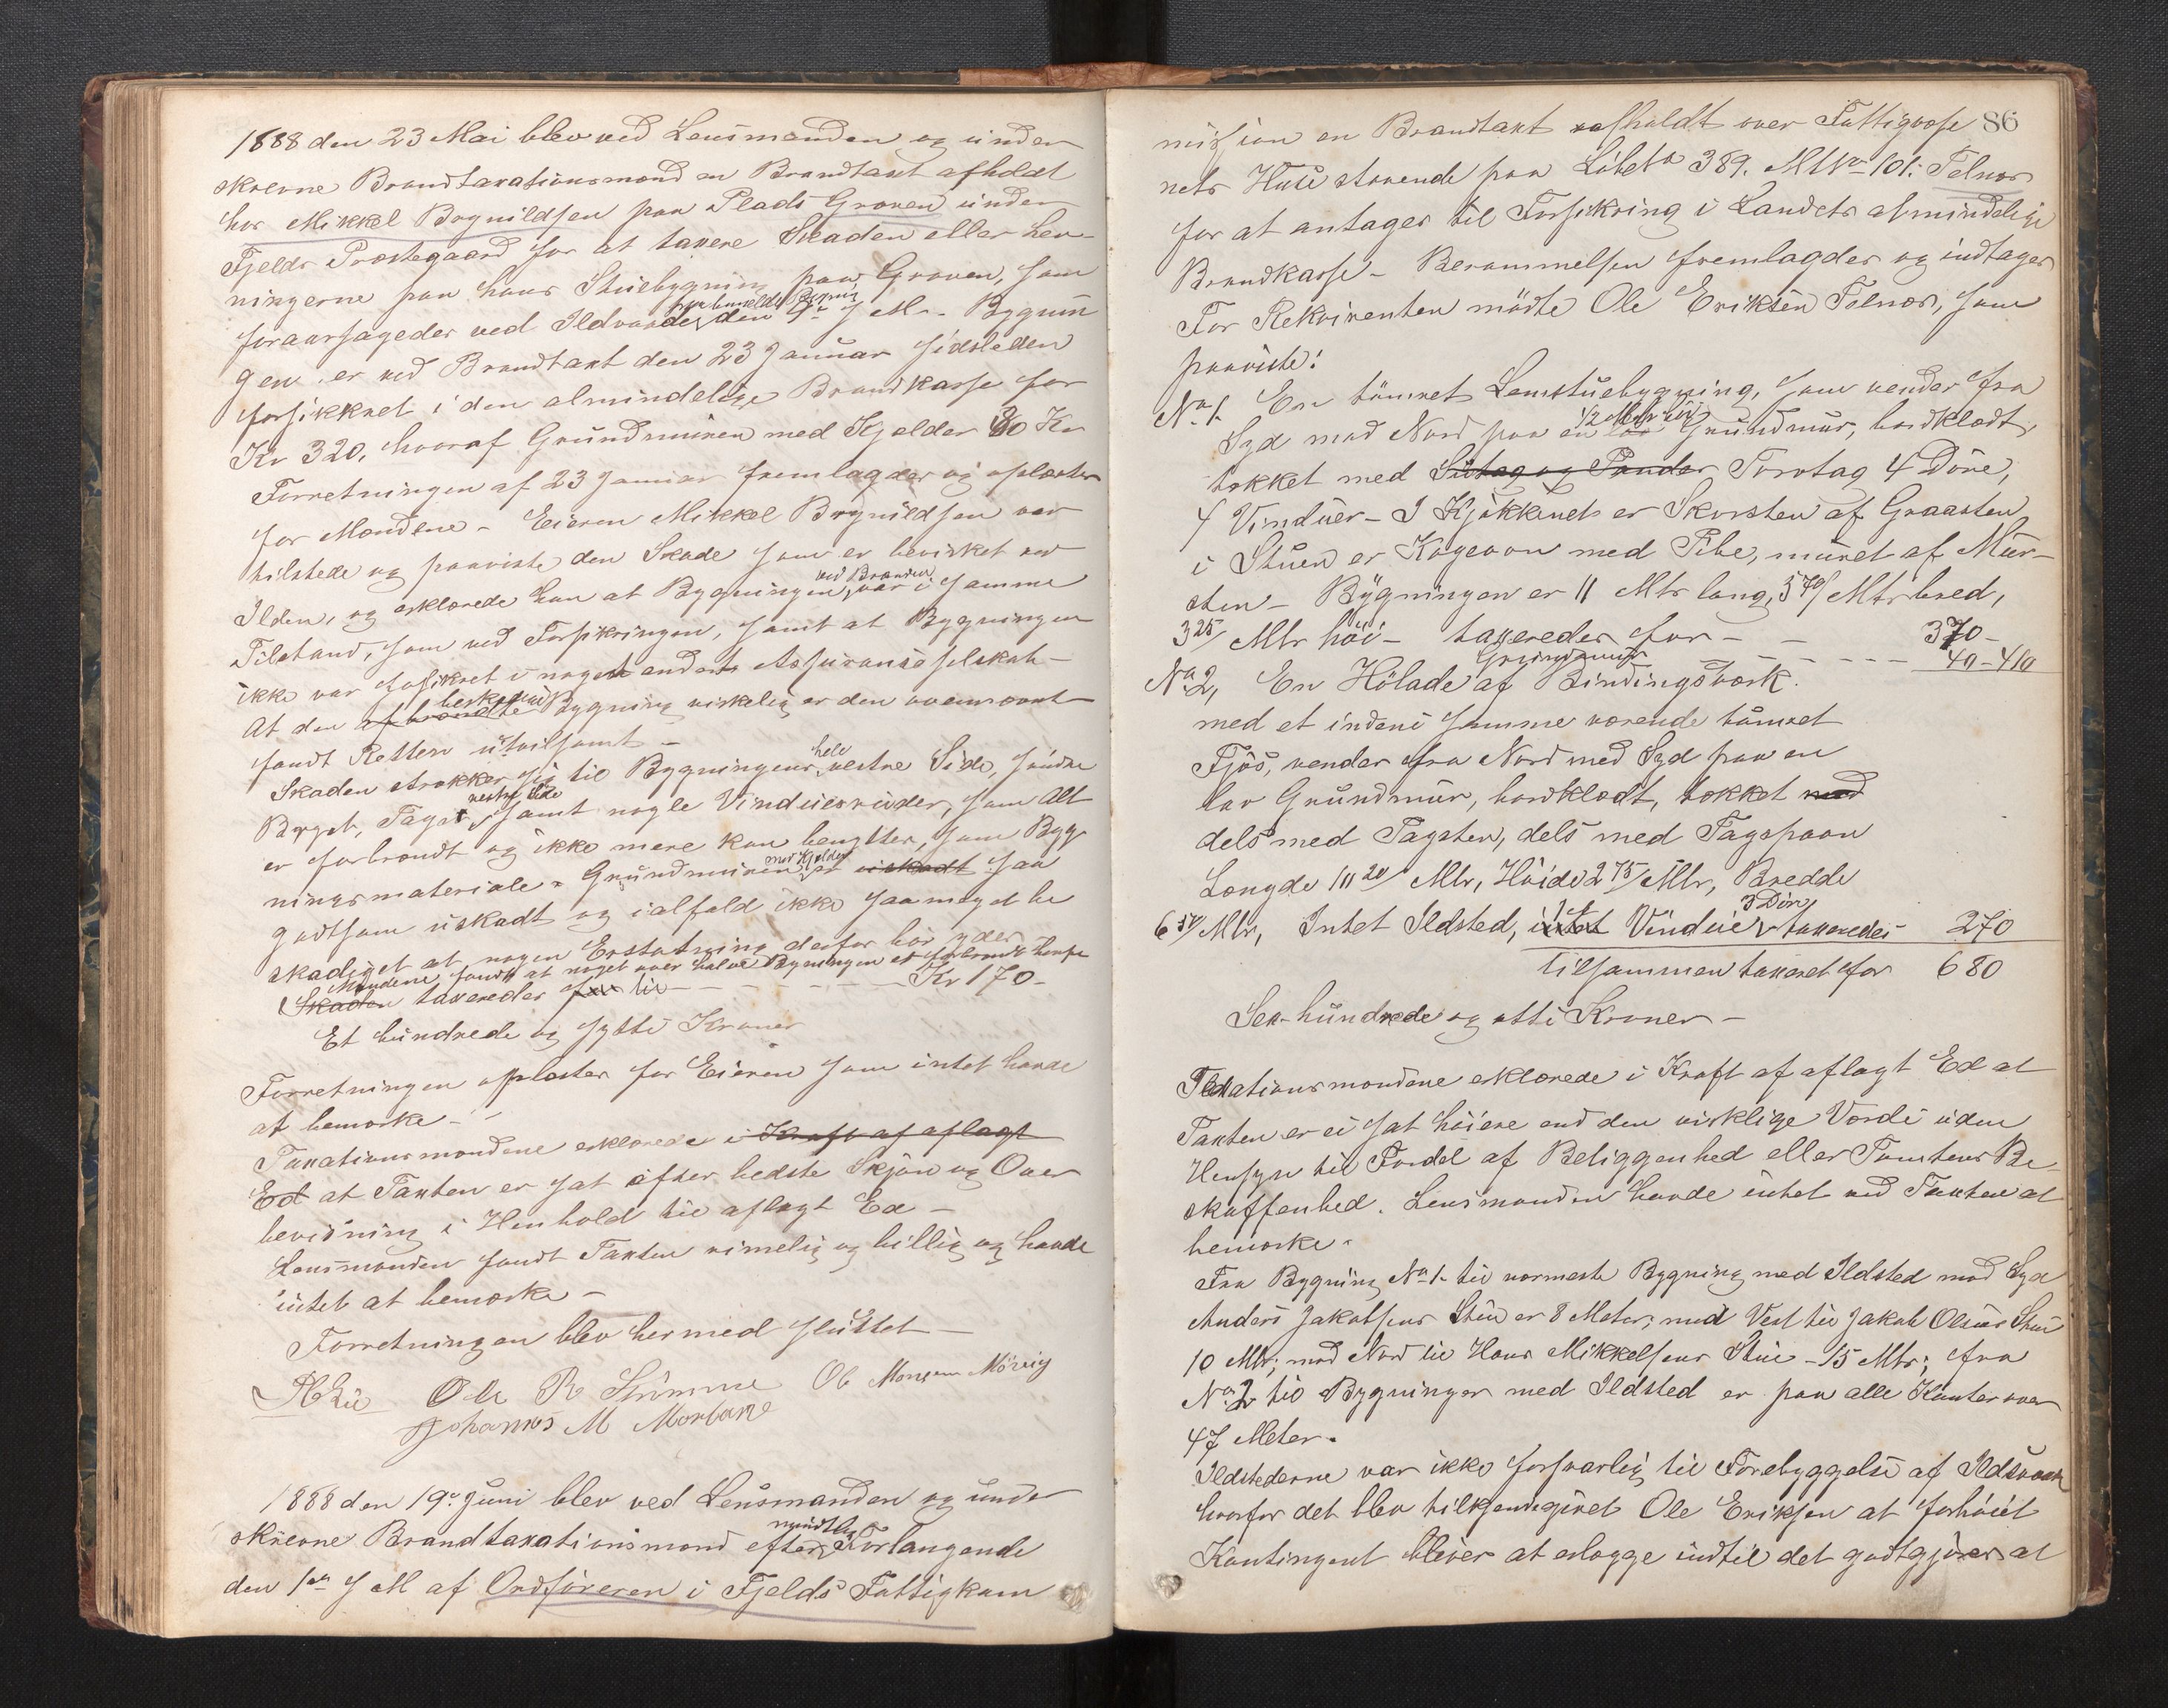 1888 den 23 Mai blev ved Lensmanden og under
skrevne Brandtaxationsmænd en Brandtaxt afholdt
hos Mikkel Brynildsen paa Plads Graven under
Fjelds Præstegaard for at taxere Skaden eller Lev-
ningerne paa hans Stuebygning paa Graven, som
foraarsagedes ved Ildvaade den 9de d M. Bygnin
gen er ved Brandtaxt den 23 Januar sidstleden
forsikkret i den almindelige Brandkasse for
Kr 320, hvoraf Grundmuren med Kjelder 80 Kr
Forretningen af 23 Januar fremlagdes og oplæstes
for Mændene - Eieren Mikkel Brynildsen var
tilstede og paaviste den Skade som er bevirket ved
Ilden, og erklærede han at Bygningen ved Branden var i samme
Tilstand, som ved Forsikringen, samt at Bygningen
ikke var forsikret i noget andet Assuranceselskab -
At den afbrændte beskrevne Bygning virkelig er den ovennævnte
fandt Retten utvilsomt -
Skaden strækker sig til Bygningens hele vestre Side, søndre
Bryst, Taget vestre Side, samt nogle Vinduesruder, som Alt
er forbrændt og ikke mere kan benyttes, som Byg-
ningsmateriale. Grundmuren med Kjelder er uskadt saa
godtsom uskadt og ialfald ikke saameget be
skadiget at nogen Erstatning derfor bør ydes
Mændene fandt at noget over halve Bygningen er forbrændt
Skaden taxeredes til - - - - - - Kr 170 -
Et hundrede og sytti Kroner
Forretningen oplæstes for Eieren som intet havde
at bemærke -
Taxationsmændene erklærede i Kraft af aflagt
Ed at Taxten er sat efter bedste Skjøn og Over
bevisning i Henhold til aflagt Ed -
Lensmanden fandt Taxten rimelig og billig og havde
intet at bemærke -
Forretningen blev hermed sluttet -
Ole R Strømme Ole Monsen Møvig
Johannes M Morland
1888 den 19de Juni blev ved Lensmanden og under
skrevne Brandtaxationsmænd efter mundtlig Forlangende
den 1ste d M af Ordføreren i Fjelds Fattigkom
86
mission en Brandtaxt afholdt over Fattigvæse
nets Huse staaende paa Løbeno 389. MNo 101. Telnæs
for at antages til Forsikring i Landets almindelige
Brandkasse - Berammelsen fremlagdes og indtages
For Rekvirenten mødte Ole Eriksen Telnæs, som
paaviste:
No 1. En tømret Lemstuebygning, som vender fra
Syd mod Nord paa en 1/2 Meter høi Grundmur, bordklædt,
tækket med Sutag og Pander Torvtag 4 Döre,
4 Vinduer - I Kjøkkenet er Skorsten af Graasten
i Stuen er Kogeovn med Pibe, muret af Mur-
sten - Bygningen er 11 Mtr lang, 5 70/ Mtr bred,
3 25/ Mtr høi - taxeredes for - - 370 -
Grundmur - - - - - 40 - 410
No 2, En Hölade af Bindingsværk.
med et indeni samme værende tömret
Fjös, vender fra Nord med Syd paa en
lav Grundmur, bordklædt, tækket med
dels med Tagsten, dels med Tagspaan
Længde 10 20/ Mtr, Høide 2 75/ Mtr, Bredde
6 50/ Mtr, Intet Ildsted, intet 1 Vindue 3 Dör, taxeredes 270
tilsammen taxeret for 680
Sex hundrede og otti Kroner -
Taxationsmændene erklærede i Kraft af aflagt Ed at
Taxten er ei sat høiere end den virklige Værdi uden
Hensyn til Fordel af Beliggenhed eller Tomtens Be
skaffenhed. Lensmanden havde intet ved Taxten at
bemærke.
Fra Bygning No 1. til nærmeste Bygning med Ildsted mod Syd
Anders Jakobsens Stue er 8 Meter; mod Vest til Jakob Olsens Stue
10 Mtr; mod Nord til Hans Mikkelsens Stue - 15 Mtr; fra
No 2 til Bygninger med Ildsted er paa alle Kanter over
47 Meter.
Ildstederne var ikke forsvarlig til Forebyggelse af Ildsvaade
hvorfor det blev tilkjendegivet Ole Eriksen at forhøiet
Kontingent bliver at erlægge indtil det godtgjøres at